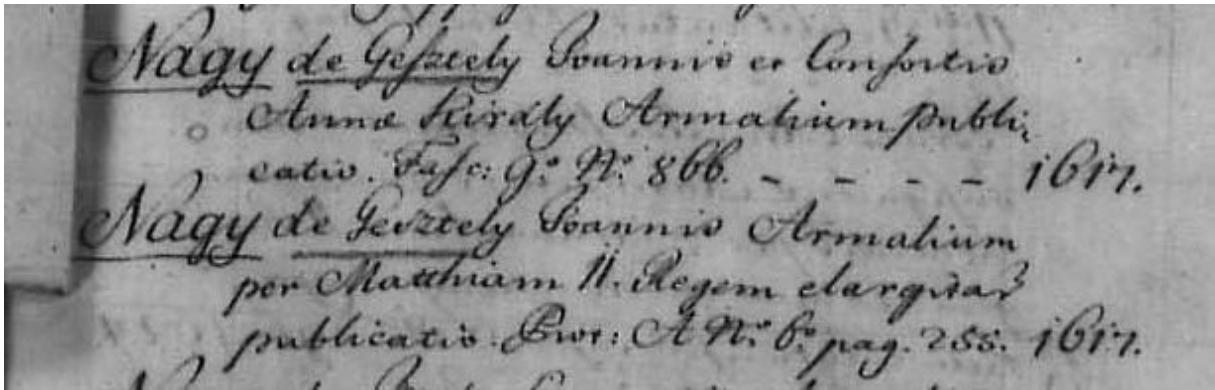 Nagy de Gesztely Joannis et Consortis
Annæ Király Armalium publi-
catio. Fasc: 9o No: 866. - - - - 1617.
Nagy de Gesztely Joannis Armalium
per Matthiam II. Regem elargitar
publicatio. Prot: A No: 6o pag. 255. 1617.